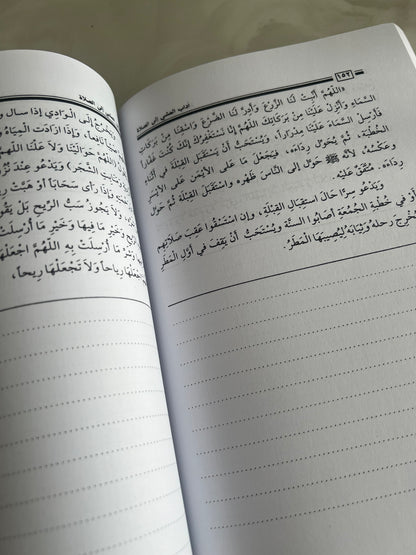 ١٥٢
آداب المشي إلى الصلاة
«اللَّهُمَّ أَنْبِتْ لَنَا الزَّرْعَ وَأَدِرَّ لَنَا الضَّرْعَ وَاسْقِنَا مِنْ بَرَكَاتِ
السَّمَاءِ وَأَنْزِلْ عَلَيْنَا مِنْ بَرَكَاتِكَ اللَّهُمَّ إِنَّا نَسْتَغْفِرُكَ إِنَّكَ كُنْتَ غَفَّاراً
فَأَرْسِلِ السَّمَاءَ عَلَيْنَا مِدْرَاراً، وَيُسْتَحَبُّ أَنْ يَسْتَقْبِلَ الْقِبْلَةَ فِي أَثْنَاءِ
الْخُطْبَةِ، ثُمَّ يُحَوِّلُ رِدَاءَهُ، فَيَجْعَلُ مَا عَلَى الْأَيْمَنِ عَلَى الْأَيْسَرِ
وَعَكْسُهُ؛ لِأَنَّهُ ﷺ حَوَّلَ إِلَى النَّاسِ ظَهْرَهُ وَاسْتَقْبَلَ الْقِبْلَةَ ثُمَّ حَوَّلَ
رِدَاءَهُ. مُتَّفَقٌ عَلَيْهِ.
وَيَدْعُو سِرًّا حَالَ اسْتِقْبَالِ الْقِبْلَةِ، وَإِنِ اسْتَسْقَوْا عَقِبَ صَلَاتِهِمْ
أَوْ فِي خُطْبَةِ الْجُمُعَةِ أَصَابُوا السُّنَّةَ وَيُسْتَحَبُّ أَنْ يَقِفَ فِي أَوَّلِ الْمَطَرِ
رَحْلَهُ وَثِيَابَهُ لِيُصِيبَهَا الْمَطَرُ.
إلى الصلاة
إِلَى الْوَادِي إِذَا سَالَ
وَإِذَا زَادَتِ الْمِيَاهُ
حَوَالَيْنَا وَلَا عَلَيْنَا اللَّهُمَّ
الشَّجَرِ» وَيَدْعُو عِنْدَ
إِذَا رَأَى سَحَاباً أَوْ هَبَّتْ
وَلَا يَجُوزُ سَبُّ الرِّيحِ بَلْ
خَيْرَ مَا فِيهَا وَخَيْرَ مَا أُرْسِلَتْ
مَا أُرْسِلَتْ بِهِ اللَّهُمَّ اجْعَلْهَا
رِيَاحاً وَلَا تَجْعَلْهَا رِيحاً،